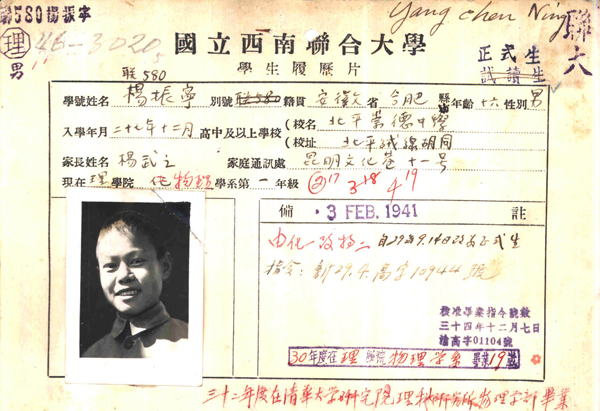 聯580楊振寧
Yang Chen Ning
理 46-3020
男
聯六
國立西南聯合大學
正式生
試讀生
學生履歷片
聯580
學號姓名 楊振寧 別號 聯580 籍貫 安徽 省 合肥 縣 年齡 十六 性別 男
入學年月 二十七年十二月 高中及以上學校 (校名 北平崇德中學
(校址 北平絨線胡同
家長姓名 楊武之 家庭通訊處 昆明文化巷十一號
現在 理 學院 化 物理 學系 第 一 年級 ②17 3-18 4 19
備 3 FEB. 1941 註
由化一改物二 自29年9.14日改為正式生
指令:新29.9.高字10944號
核准畢業指令號數
三十四年十二月七日
渝高字01104號
30年度在理學院物理學系畢業19號
三十二年度在清華大學研究院理科研究所物理學部畢業